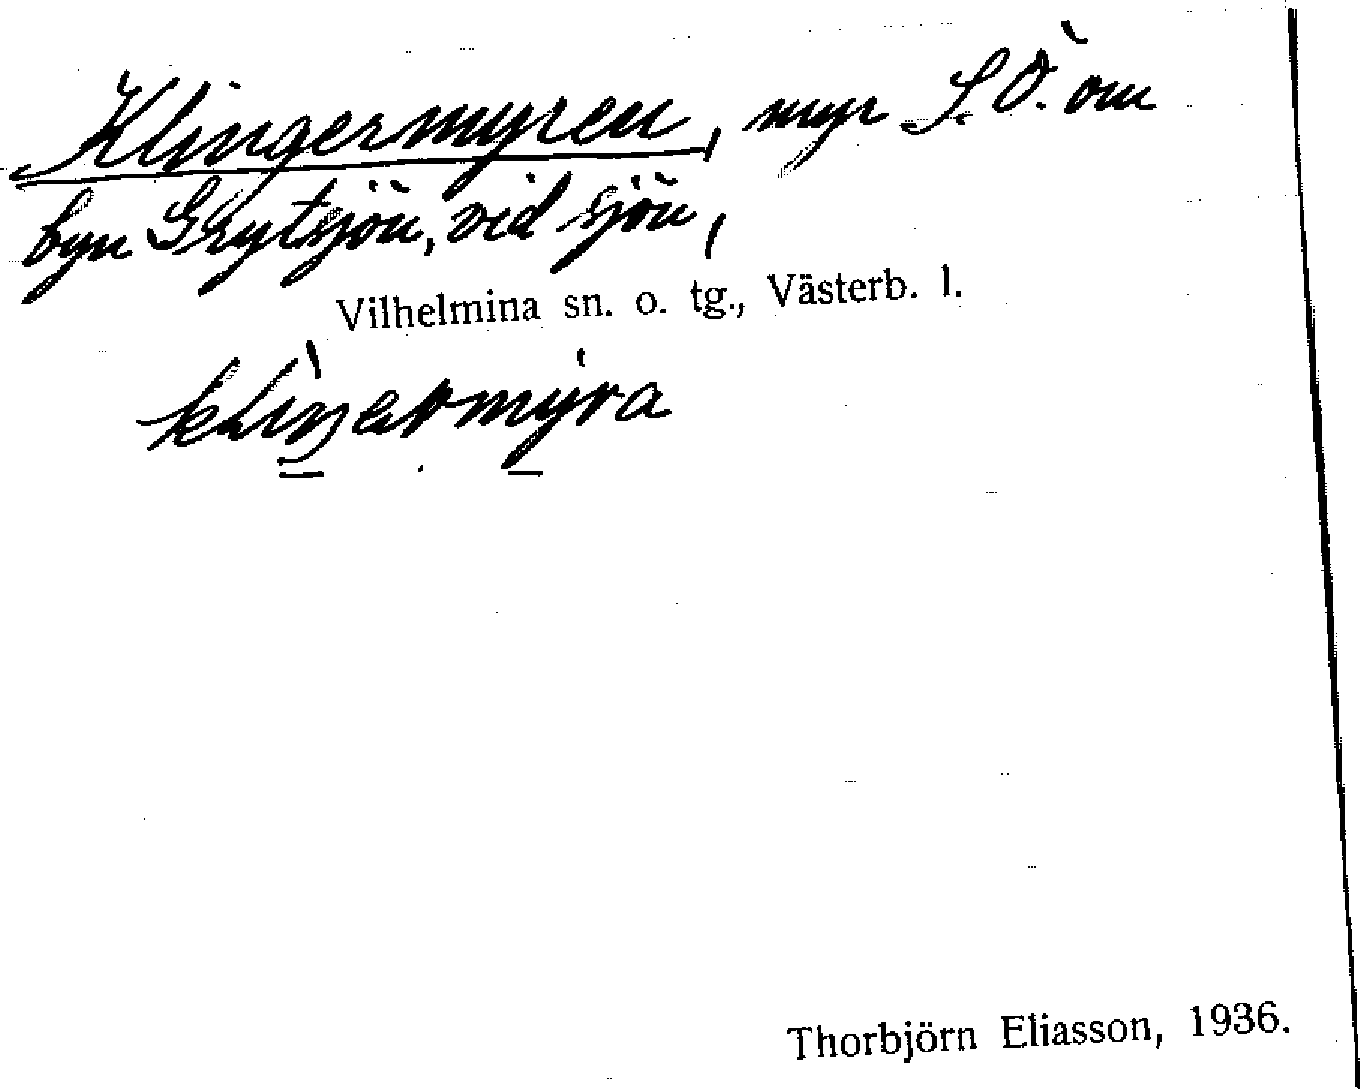 Klingermyren, myr S.Ö. om
byn Grytsjön, vid sjön,
Vilhelmina sn. o. tg., Västerb. l.
klìŋermýra
Thorbjörn Eliasson, 1936.